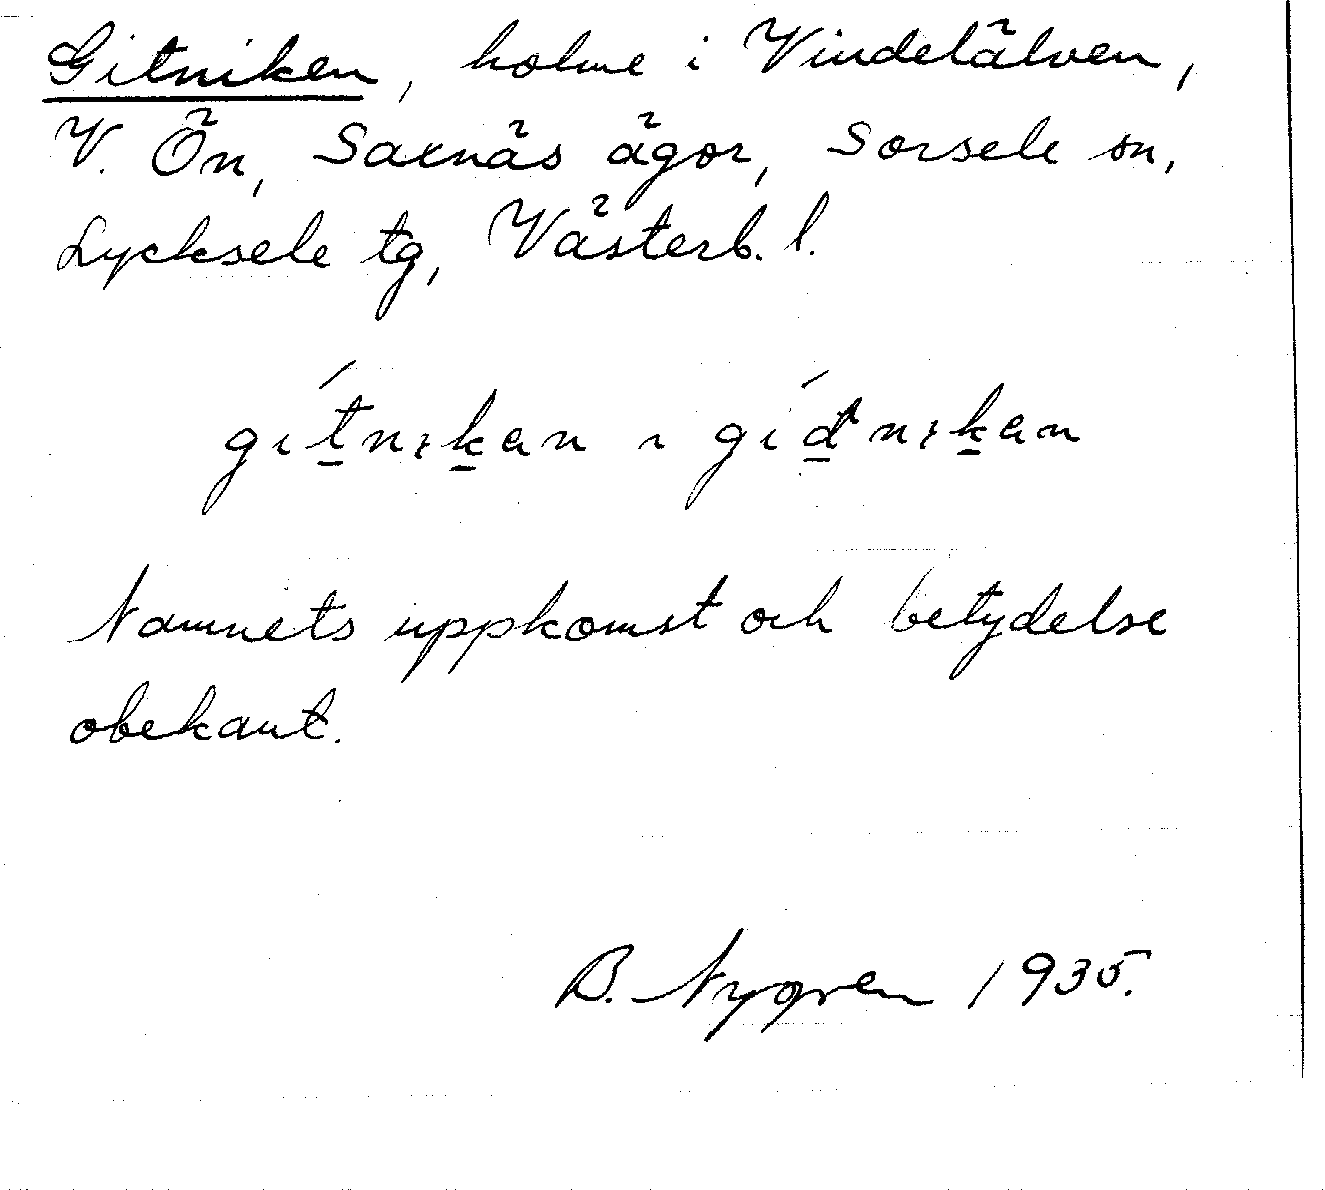 Gitniken, holme i Vindelälven,
V. Ön, Saxnäs ägor, Sorsele sn,
Lycksele tg, Västerb. l.
Namnets uppkomst och betydelse
obekant.
B. Nygren 1935.